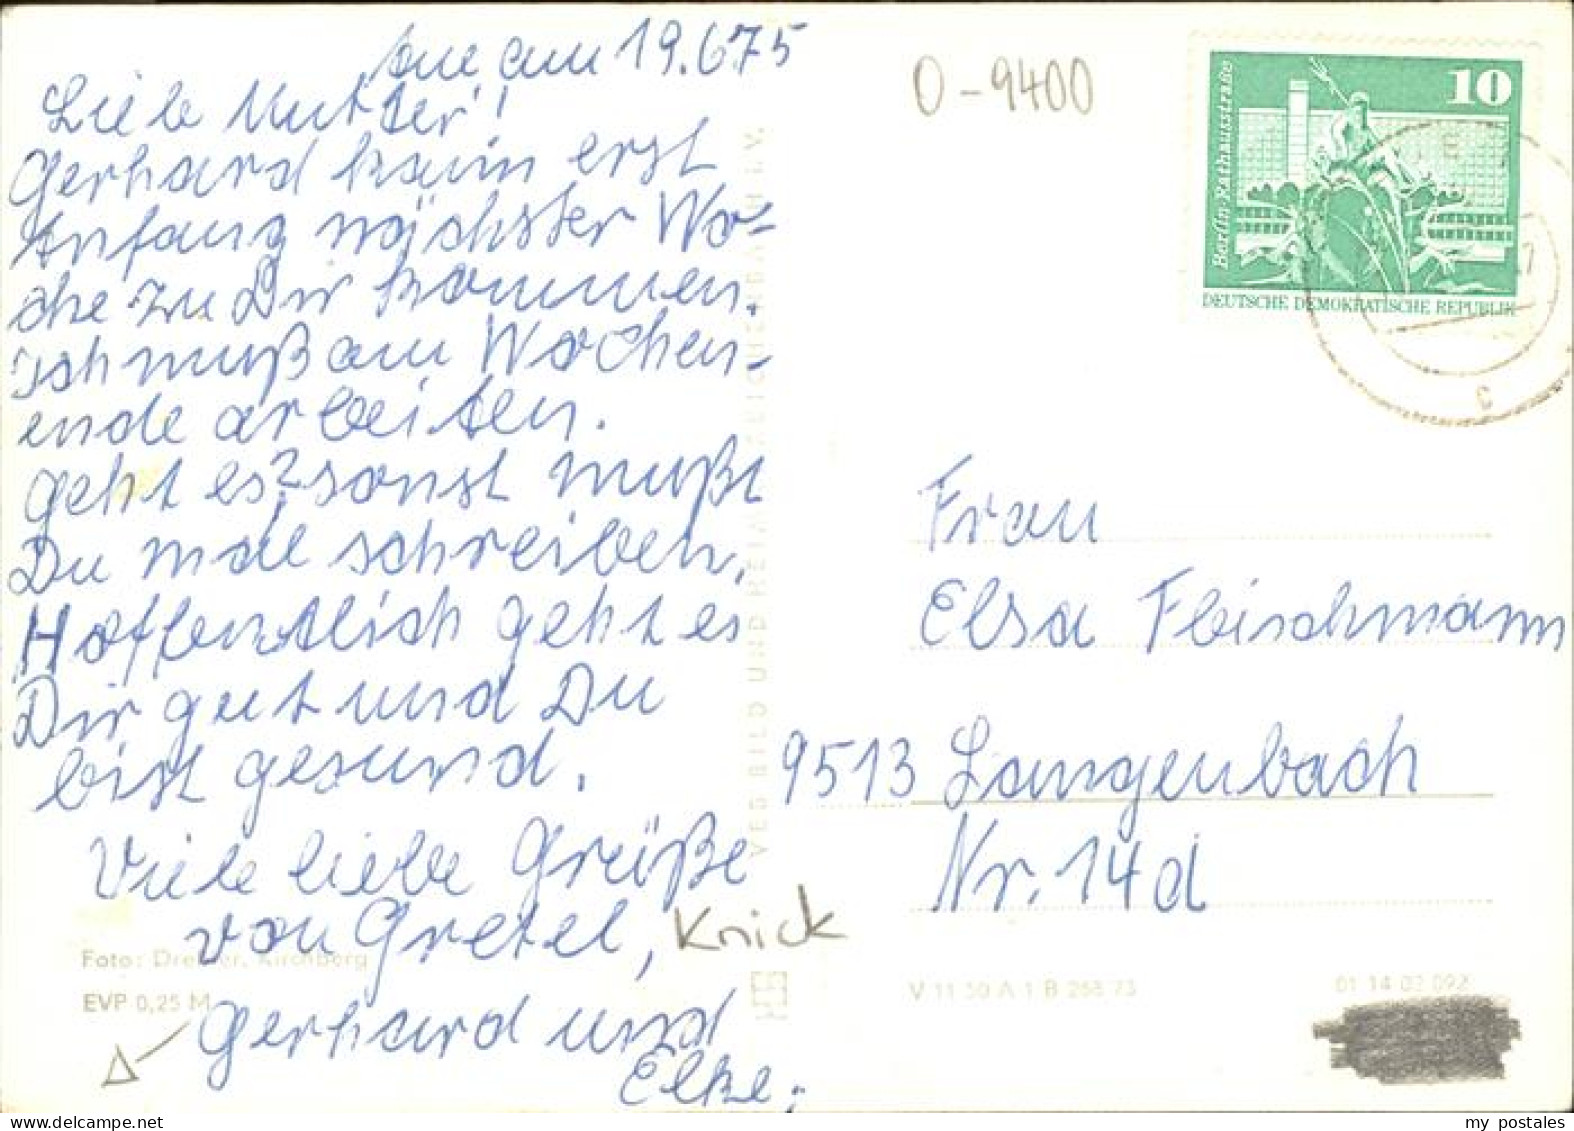 Aue am 19.6.75
Liebe Mutter!
Gerhard kann erst
Anfang nächster Wo-
che zu Dir kommen.
Ich muß am Wochen-
ende arbeiten.
Geht es? sonst mußt
Du mal schreiben.
Hoffentlich geht es
Dir gut und Du
bist gesund.
Viele liebe Grüße
von Gretel,
Gerhard und
Elke.
Knick
Foto: Kirchberg
EVP 0,25 M
VEB BILD UND HEIMAT REICHENBACH I. V.
V 11 50 A 1 B 268 73
01 14 02 092
O-9400
10
Berlin · Rathausstraße
DEUTSCHE DEMOKRATISCHE REPUBLIK
c
Frau
Elsa Fleischmann
9513 Langenbach
Nr. 14d
my postales